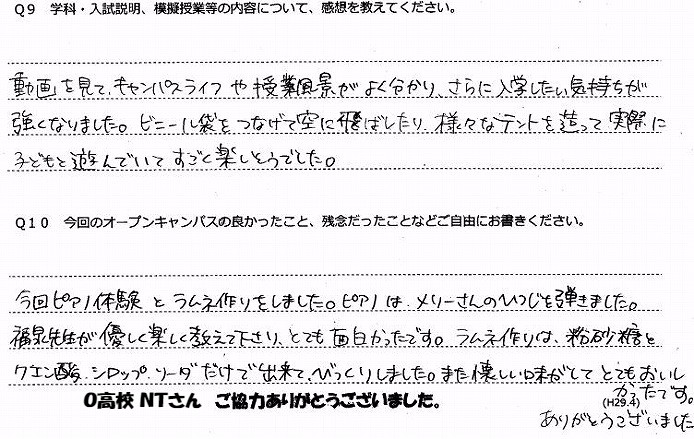 Q9 学科・入試説明、模擬授業等の内容について、感想を教えてください。
動画を見て、キャンパスライフや授業風景がよく分かり、さらに入学したい気持ちが
強くなりました。ビニール袋をつなげて空に飛ばしたり、様々なテントを造って実際に
子どもと遊んでいてすごく楽しそうでした。
Q10 今回のオープンキャンパスの良かったこと、残念だったことなどご自由にお書きください。
今回ピアノ体験とラムネ作りをしました。ピアノは、メリーさんのひつじを弾きました。
福泉先生が優しく楽しく教えて下さり、とても面白かったです。ラムネ作りは、粉砂糖と
クエン酸、シロップ、ソーダだけで出来て、びっくりしました。また懐しい味がしてとてもおいし
かったです。
O高校 NTさん ご協力ありがとうございました。
(H29.4)
ありがとうございました